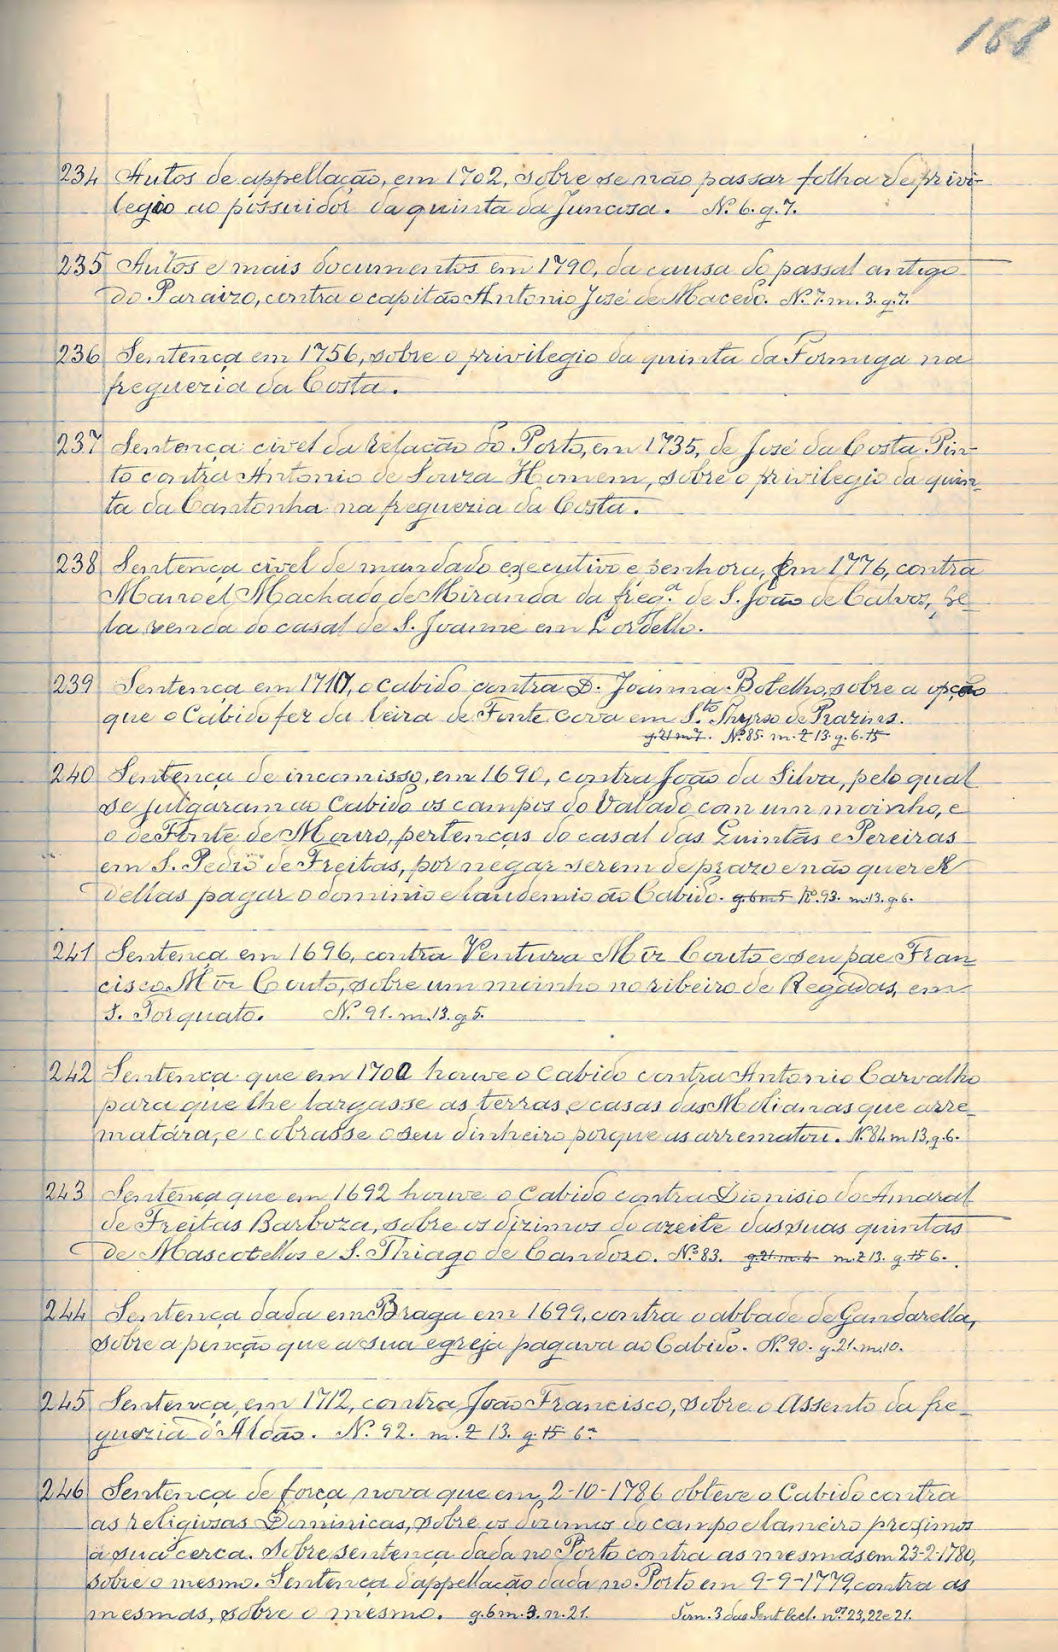 168
234 Autos de appellação, em 1702, sobre se não passar folha de privi-
legio ao possuidor da quinta da Juncosa. Nº. 6. g. 7.
235 Autos e mais documentos em 1790, da causa do passal antigo
do Paraizo, contra o capitão Antonio José de Macedo. Nº. 7. m. 3. g. 7.
236 Sentença em 1756, sobre o privilegio da quinta da Formiga na
freguezia da Costa.
237 Sentença civel da Relação do Porto, em 1735, de José da Costa Pin-
to contra Antonio de Souza Homem, sobre o privilegio da quin-
ta da Cantonha na freguezia da Costa.
238 Sentença civel de mandado executivo e penhora, em 1776, contra
Manoel Machado de Miranda da freg.ª de S. João de Calvos, pe-
la renda do casal de S. Joanne em Lordello.
239 Sentença em 1710, o Cabido contra D. Joanna Botelho, sobre a opção
que o Cabido fez da leira de Fonte cova em S.to Thyrso de Prazins.
g. 21 m 7. Nº. 85. m. 13. g. 6.
240 Sentença de incomisso, em 1690, contra João da Silva, pelo qual
se julgaram ao Cabido os campos do Valado com um moinho, e
o de Fonte de Mouro, pertenças do casal das Quintãs e Pereiras
em S. Pedro de Freitas, por negar serem de prazo e não querer
dellas pagar o dominio e laudemio ao Cabido. g. 6 m 5 Nº. 93. m. 13. g. 6.
241 Sentença em 1696, contra Ventura Miz Couto e seu pae Fran-
cisco Miz Couto, sobre um moinho no ribeiro de Regadas, em
S. Torquato. Nº. 91. m. 13. g 5.
242 Sentença que em 1700 houve o Cabido contra Antonio Carvalho
para que lhe largasse as terras e casas das Molianas que arre-
matára, e cobrasse o seu dinheiro porque as arrematou. Nº. 84 m 13, g. 6.
243 Sentença que em 1692 houve o Cabido contra Dionisio do Amaral
de Freitas Barboza, sobre os dizimos do azeite das suas quintas
de Mascotellos e S. Thiago de Candoso. Nº. 83. g. 21. m. 6 m. 13. g. 6.
244 Sentença dada em Braga em 1699, contra o abbade de Gandarella,
sobre a penção que a sua egreja pagava ao Cabido. Nº. 90. g. 21. m. 10.
245 Sentença, em 1712, contra João Francisco, sobre o Assento da fre-
guezia d'Aldão. Nº. 92. m. 13. g. 6ª
246 Sentença de força nova que em 2-10-1786 obteve o Cabido contra
as religiosas Dominicas, sobre os dizimos do campo e lameiro proximos
á sua cerca. Sobresentença dada no Porto contra as mesmas em 23-2-1780,
sobre o mesmo. Sentença d'appellação dada no Porto em 9-9-1779, contra as
mesmas, sobre o mesmo. g. 6 m. 3. n. 21. Tom. 3 das Sent Eccl. nos 23, 22 e 21.